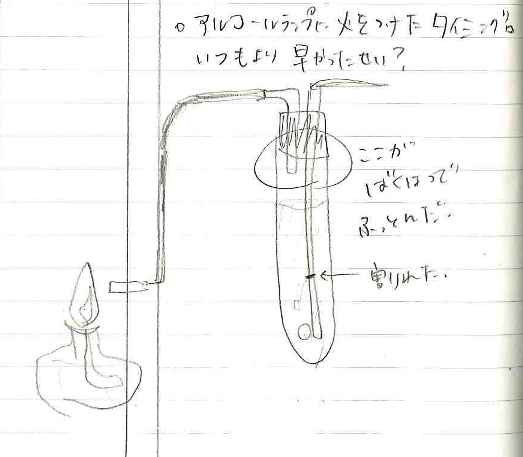 ○ アルコールランプに 火をつけた タイミングが
いつもより 早かったせい?
ここが
ばくはつで
ふっとんだ。
割れた。